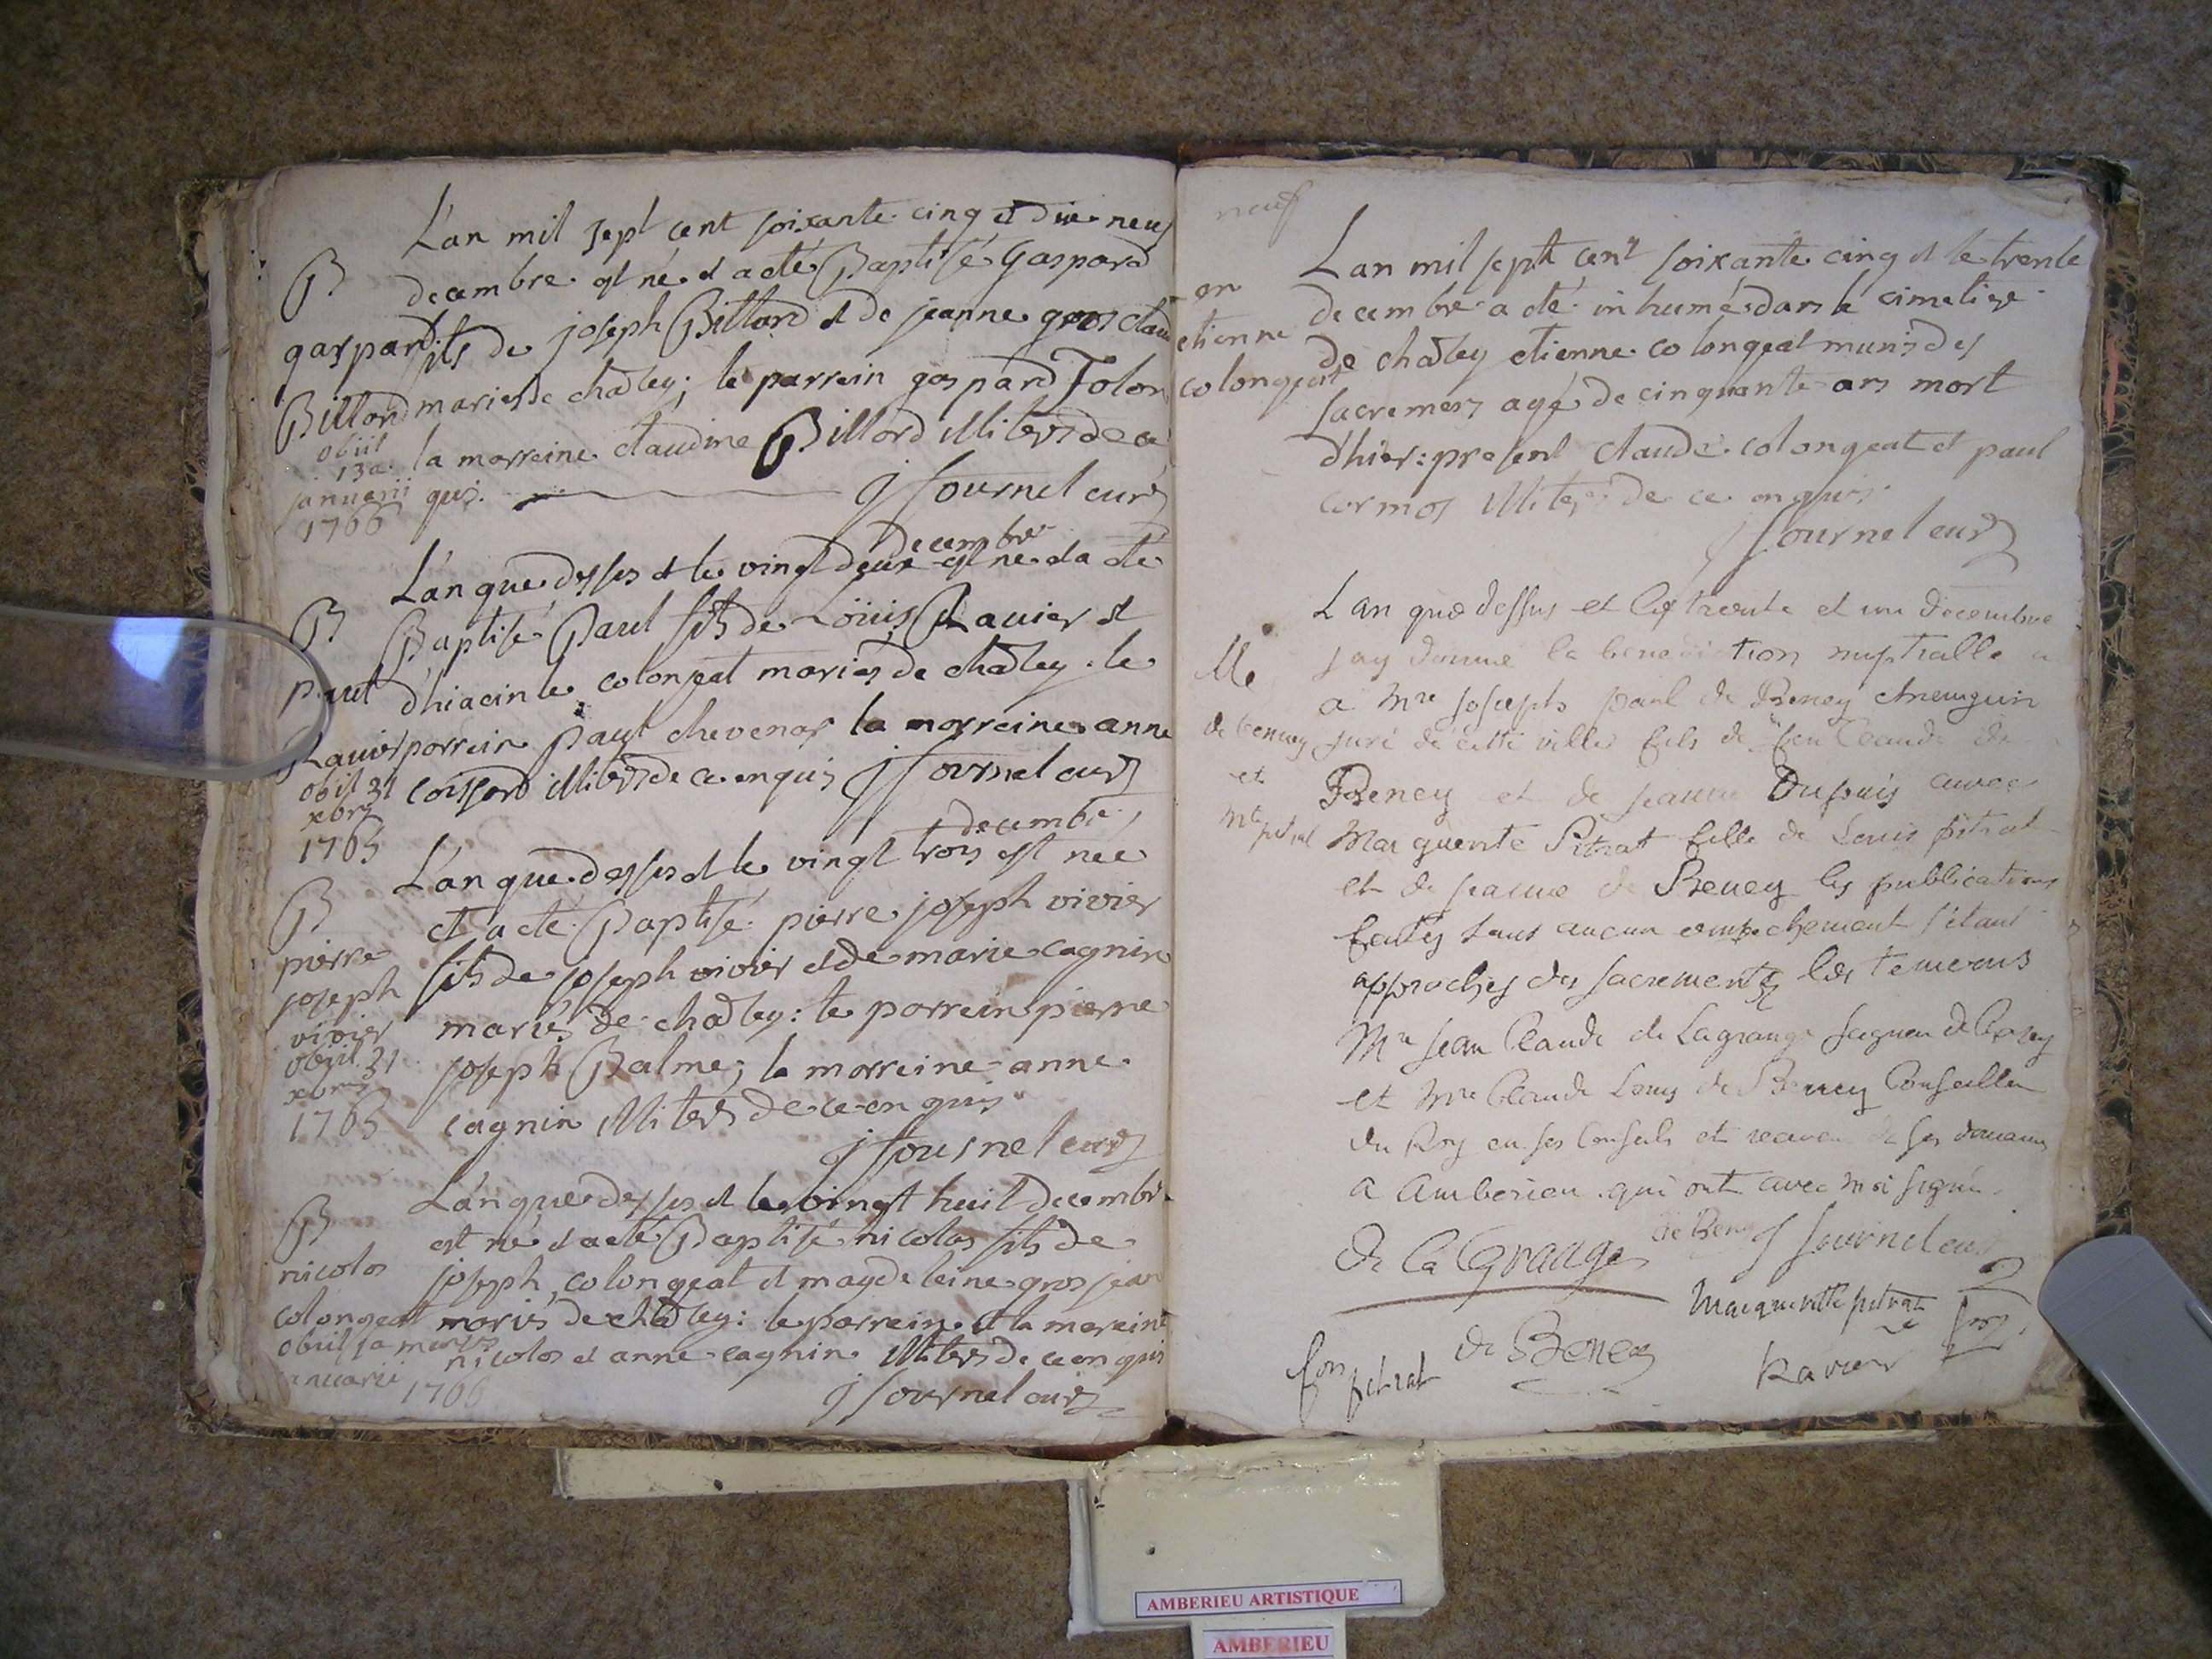 L'an mil sept cent soixante cinq et dix neuf
B
decembre est né et a eté Baptisé Gaspard
gaspard
fils de joseph Billard et de jeanne gros claude
Billard
mariés de chatley; le parrein gaspard Tolon
obiit
13a
la marreine claudine Billard illiterés de ce
januarii
quis. j fournel curé
1766
decembre
L'an que dessus et le vingt deux est né et a eté
B
Baptisé Paul fils de Loüis Ravier et
paul
d'hiacinte colongeat mariés de chatley. le
Ravier
parrein Paul chevenas la marreine anne
obiit 31
coissard illiterés de ce enquis j fournel curé
xbris
1765
decembre
L'an que dessus et le vingt trois est née
B
et a eté Baptisé pierre joseph vivier
pierre
fils de joseph vivier et de marie cagnin
joseph
mariés de chatley: le parrein pierre
vivier
obiit 31
joseph Balme; la marreine anne
xbris
cagnin illiterés de ce en quis
1765
j fournel curé
L'an que dessus et le vingt huit decembre
B
est né et a eté Baptisé nicolas fils de
nicolas
joseph colongeat et magdeleine gros jean
colongeat
mariés de chatley: le parrein et la mareine
obiit 1a mensis
nicolas et anne cagnin illiterés de ce en quis
januarii 1766
j fournel curé
neuf
L an mil sept cent soixante cinq et le trente
en
decembre a eté inhumé dans le cimetiere
etienne
de chatley etienne colongeat munis des
colongeat
sacremens agé de cinquante ans mort
d'hier: present claude colongeat et paul
cormos illiterés de ce enquis
j fournel curé
L an que dessus et le trente et un decembre
j ay donné la benediction nuptialle a
Me
a Mre joseph paul de Beney chirurgien
de beney
juré de cette ville fils de feu Claude de
et
Beney et de jeanne Dupuis avec
Mte pitrat
Marguerite Pitrat fille de Louis pitrat
et de jeanne de Beney les publications
faites sans aucun empechement s'etant
approchés des sacrements les temoins
Mre jean Claude de Lagrange seigneur de
et Mre Claude Louis de Beney Conseiller
du Roy en ses Conseils et receveur de ses domaines
a Amberieu qui ont avec moi signé
de Beney j fournel curé
De la Grange
Margueritte pitrat
de Beney
Ravier
pitrat